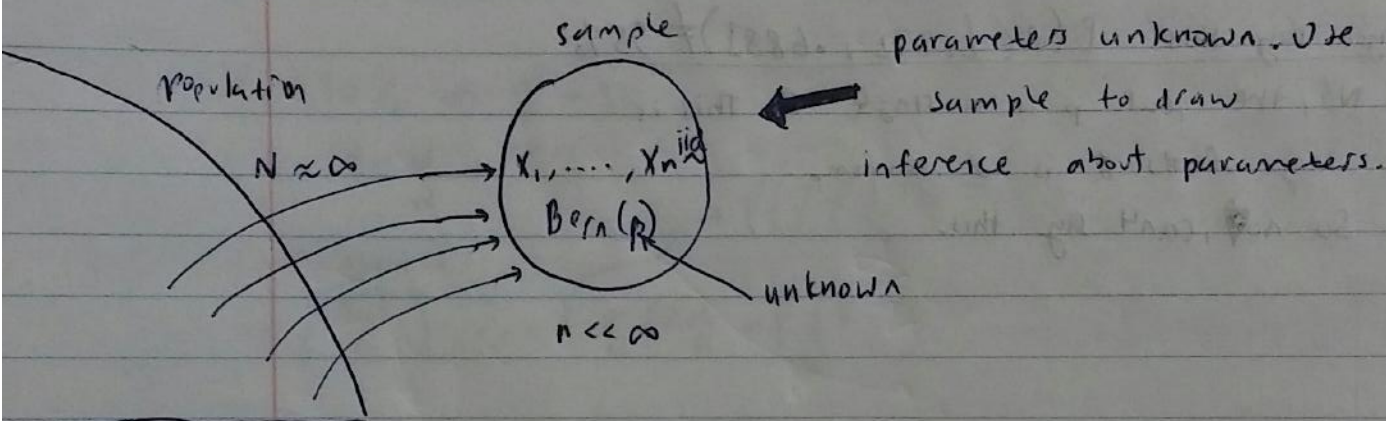 sample
population
N ≈ ∞
X₁, ...., Xₙ iid~
Bern(p)
unknown
n << ∞
parameters unknown. Use
sample to draw
inference about parameters.